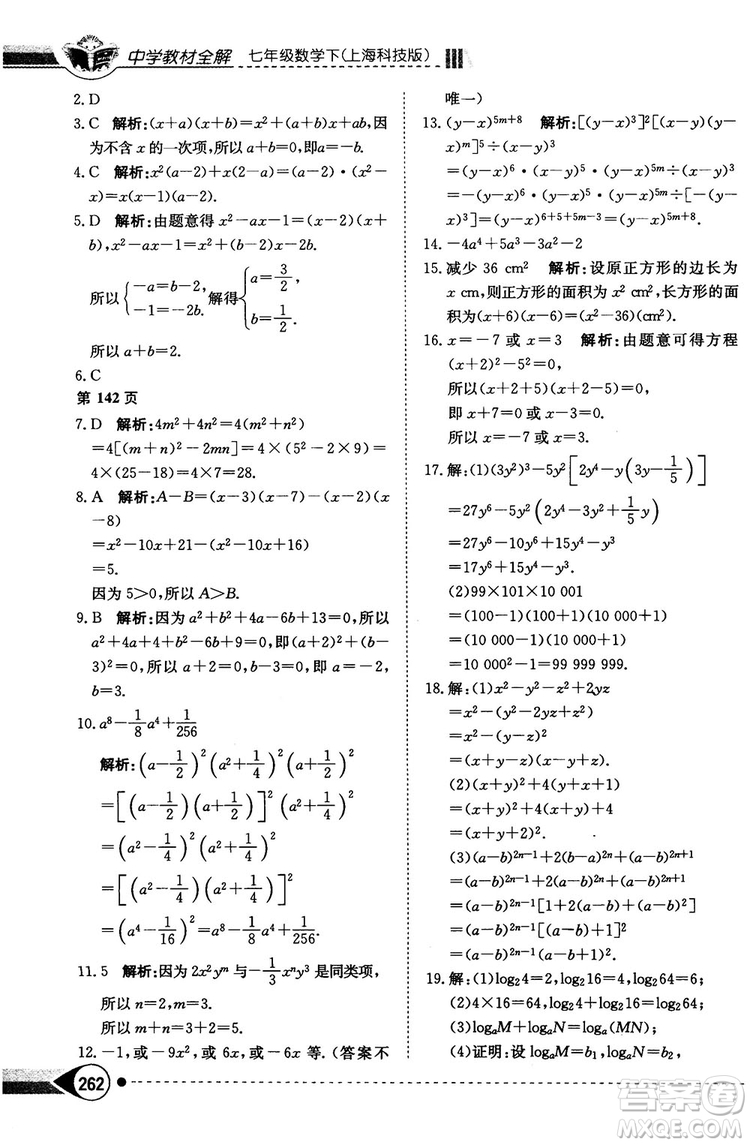 中学教材全解 七年级数学下(上海科技版)
2. D
3. C 解析:(x+a)(x+b)=x²+(a+b)x+ab,因
为不含 x 的一次项,所以 a+b=0.
4. C 解析:x²(a-2)+x(2-a)=(a-2)·(x²-
x)=x(x-1)(a-2).
5. D 解析:由题意得 x²-ax-1=(x-2)(x+
b),x²-ax-1=x²+(b-2)x-2b.
所以{-a=b-2, -1=-2b. 解得{a=3/2, b=1/2.
所以 a+b=2.
6. C
第 142 页
7. D 解析:4m²+4n²=4(m²+n²)
=4[(m+n)²-2mn]=4×(5²-2×9)=
4×(25-18)=4×7=28.
8. A 解析:A-B=(x-3)(x-7)-(x-2)(x
-8)
=x²-10x+21-(x²-10x+16)
=5.
因为 5>0,所以 A>B.
9. B 解析:因为 a²+b²+4a-6b+13=0,所以
a²+4a+4+b²-6b+9=0,即(a+2)²+(b-
3)²=0.所以 a+2=0,b-3=0,即 a=-2,
b=3.
10. a⁸-1/8a⁴+1/256
解析:(a-1/2)²(a+1/2)²(a²+1/4)²
=[(a-1/2)(a+1/2)]²(a²+1/4)²
=(a²-1/4)²(a²+1/4)²
=[(a²-1/4)(a²+1/4)]²
=(a⁴-1/16)²=a⁸-1/8a⁴+1/256.
11. 5 解析:因为 2x²yⁿ 与-1/3xⁿyᵐ是同类项,
所以 n=2,m=3.
所以 m+n=3+2=5.
12. -1,或-9x²,或-6x 或+6x 等.(答案不
唯一)
13. (y-x)⁵ᵐ⁺⁸ 解析:[(y-x)³]²[(y-x)(y-
x)ᵐ]⁵÷(y-x)³
=(y-x)⁶·(y-x)⁵·(y-x)⁵ᵐ÷(y-x)³
=-(y-x)⁶·(y-x)⁵·(y-x)⁵ᵐ÷(y-
x)³=(y-x)⁶⁺⁵⁺⁵ᵐ⁻³=(y-x)⁵ᵐ⁺⁸.
14. -4a⁴+5a³-3a²-2
15. 减少 36 cm² 解析:设原正方形的边长为
x(cm),则正方形的面积为x²(cm²),长方形的面
积为(x+6)(x-6)=(x²-36)(cm²).
16. x=-7 或 x=3 解析:由题意可得方程
(x+2)²-5²=0.
所以(x+7)(x-3)=0.
即 x+7=0 或 x-3=0.
所以 x=-7 或 x=3.
17. 解:(1)(3y²)³-5y²[2y⁴-y(3y-1/5)]
=27y⁶-5y²(2y⁴-3y²+1/5y)
=27y⁶-10y⁶+15y⁴-y³
=17y⁶+15y⁴-y³.
(2)99×101×10 001
=(100-1)(100+1)(10 000+1)
=(10 000-1)(10 000+1)
=10 000²-1=99 999 999.
18. 解:(1)x²-y²-z²+2yz
=x²-(y²+z²-2yz)
=x²-(y-z)²
=(x+y-z)(x-y+z).
(2)(x+y)²+4(x+y+1)
=(x+y)²+4(x+y)+4
=(x+y+2)².
(3)(a-b)²ⁿ⁻¹+2(a-b)²ⁿ+(a-b)²ⁿ⁺¹
=(a-b)²ⁿ⁻¹[1+2(a-b)+(a-b)²]
=(a-b)²ⁿ⁻¹(1+a-b)²
=(a-b)²ⁿ⁻¹(a-b+1)².
19. 解:(1)log₂4=2,log₂16=4,log₂64=6;
(2)4×16=64,log₂4+log₂16=log₂64;
(3)logₐM+logₐN=logₐ(MN);
(4)证明:设 logₐM=b₁,logₐN=b₂,
262
答案圈
MXQE.COM